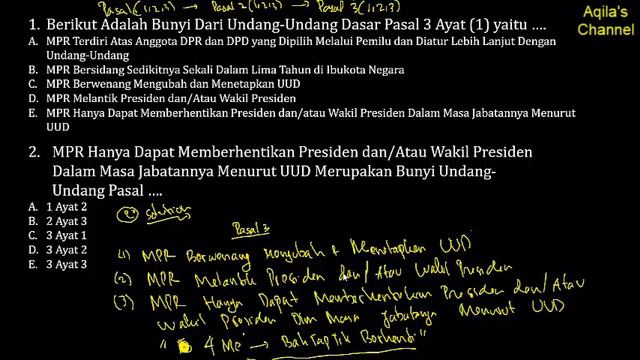 Pasal 1 (1,2,3) → Pasal 2 (1,2,3) → Pasal 3 (1,2,3)
Aqila's
Channel
1. Berikut Adalah Bunyi Dari Undang-Undang Dasar Pasal 3 Ayat (1) yaitu ....
A. MPR Terdiri Atas Anggota DPR dan DPD yang Dipilih Melalui Pemilu dan Diatur Lebih Lanjut Dengan
Undang-Undang
B. MPR Bersidang Sedikitnya Sekali Dalam Lima Tahun di Ibukota Negara
C. MPR Berwenang Mengubah dan Menetapkan UUD
D. MPR Melantik Presiden dan/Atau Wakil Presiden
E. MPR Hanya Dapat Memberhentikan Presiden dan/atau Wakil Presiden Dalam Masa Jabatannya Menurut
UUD
2. MPR Hanya Dapat Memberhentikan Presiden dan/Atau Wakil Presiden
Dalam Masa Jabatannya Menurut UUD Merupakan Bunyi Undang-
Undang Pasal ....
A. 1 Ayat 2
B. 2 Ayat 3
C. 3 Ayat 1
D. 3 Ayat 2
E. 3 Ayat 3
solution
Pasal 3
(1) MPR Berwenang Mengubah + Menetapkan UUD
(2) MPR Melantik Presiden dan/Atau Wakil Presiden
(3) MPR Hanya Dapat Memberhentikan Presiden dan/Atau
Wakil Presiden Dlm Masa Jabatannya Menurut UUD
4 Me → Bah Tap Tik Berhenti"